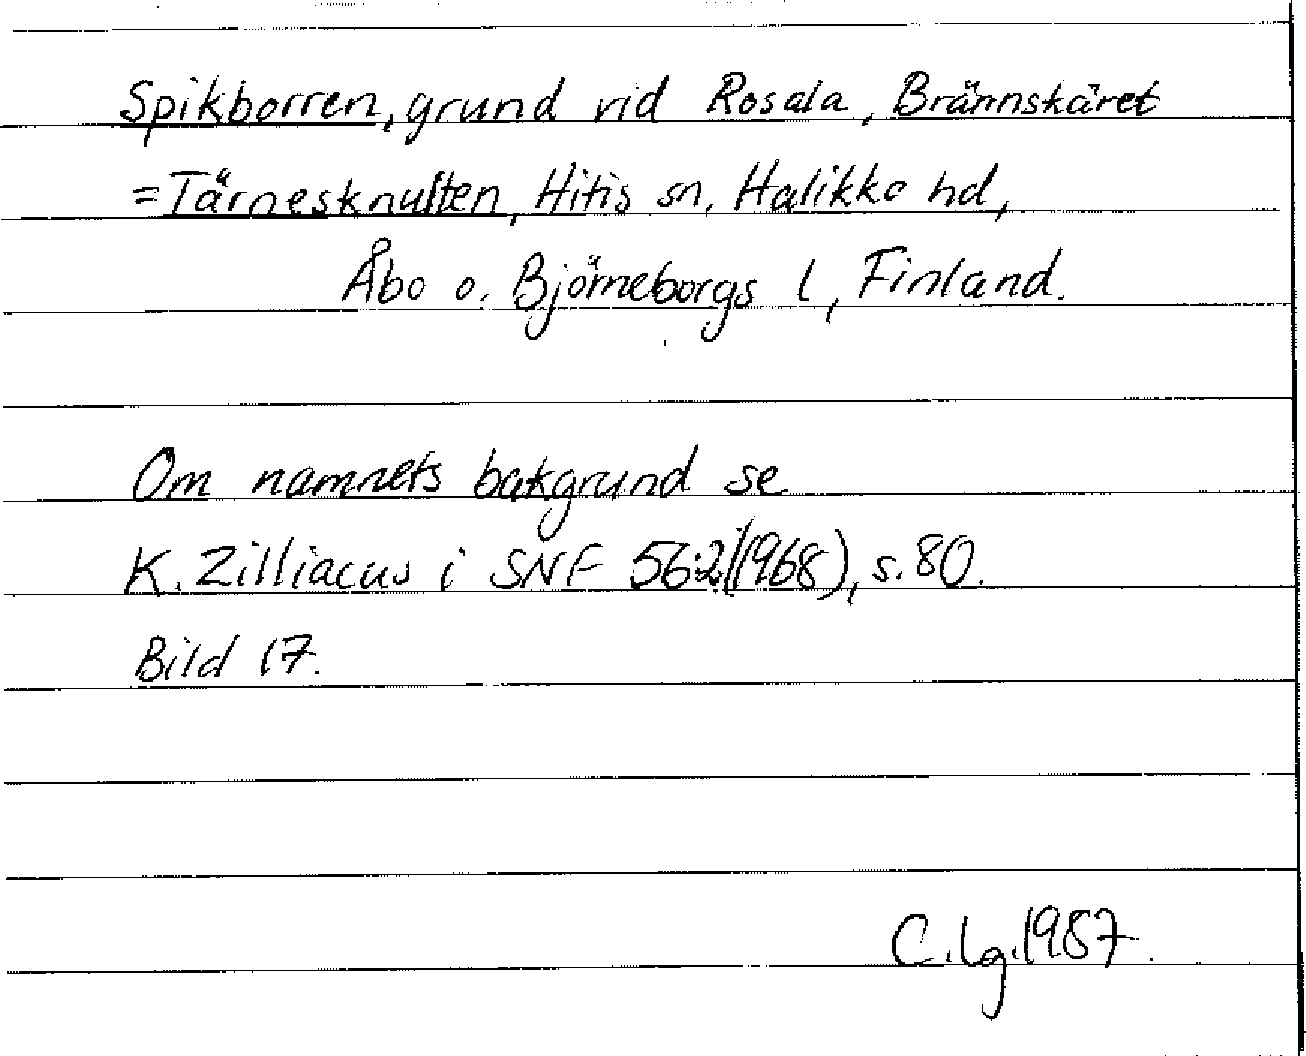 Spikborren, grund vid Rosala, Brännskäret
= Tärnesknulten, Hitis sn, Halikko hd,
Åbo o. Björneborgs l, Finland.
Om namnets bakgrund se
K. Zilliacus i SNF 56:2 (1968), s. 80.
Bild 17.
C. Lg. 1987.